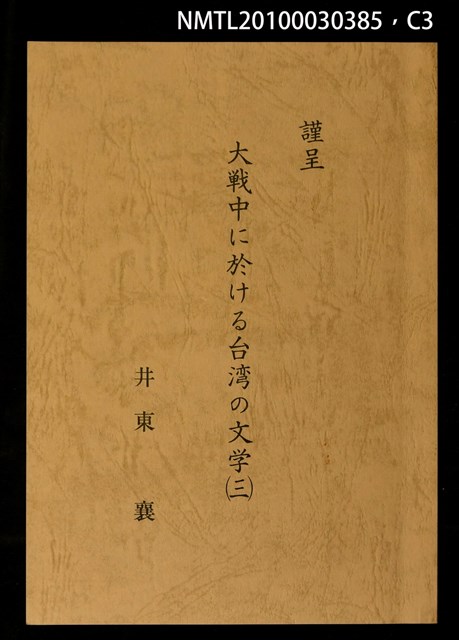 NMTL20100030385，C3
謹呈
大戦中に於ける台湾の文学(三)
井東 襄